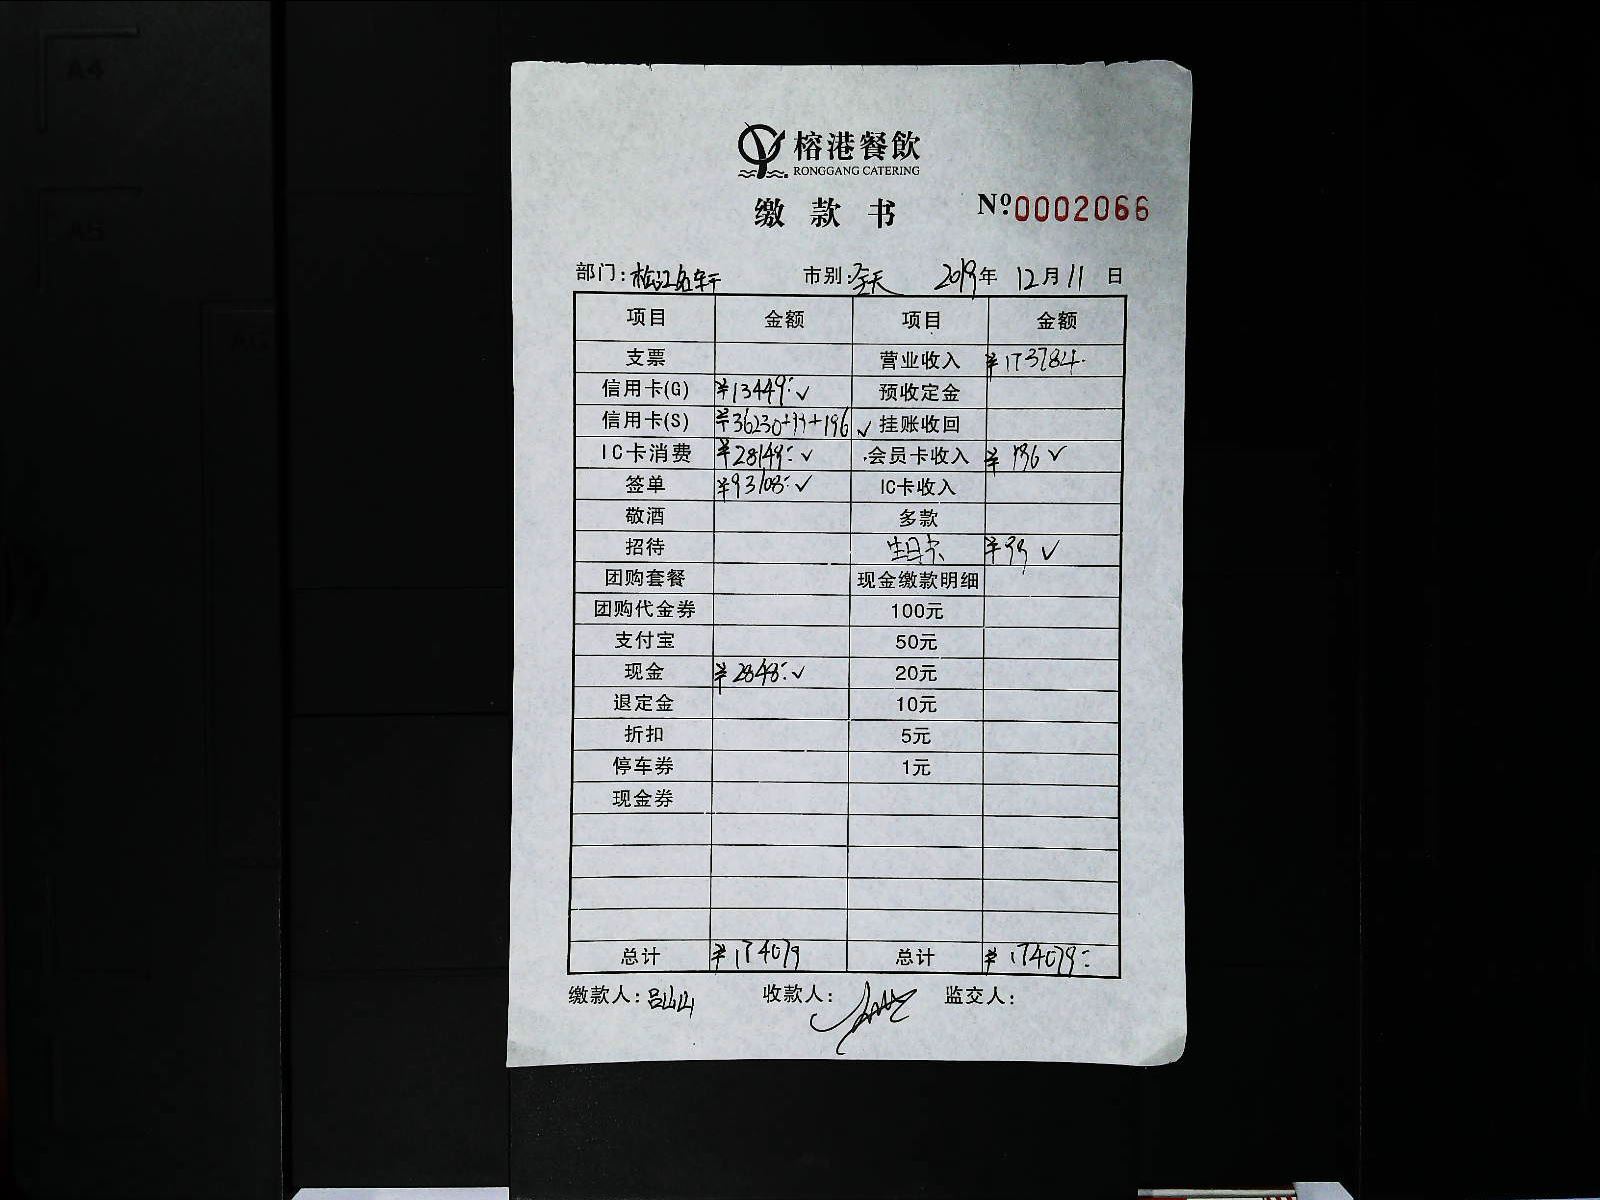 A4
A5
A6
榕港餐飲
RONGGANG CATERING
缴款书 Nº0002066
部门:松江名轩 市别:全天 2019年 12月11日
项目 金额 项目 金额
支票 营业收入 ¥173784.
信用卡(G) ¥13449:✓ 预收定金
信用卡(S) ¥36230+99+196 ✓ 挂账收回
IC卡消费 ¥28149:✓ 会员卡收入 ¥196 ✓
签单 ¥93108:✓ IC卡收入
敬酒 多款
招待 生日卡 ¥99 ✓
团购套餐 现金缴款明细
团购代金券 100元
支付宝 50元
现金 ¥2848:✓ 20元
退定金 10元
折扣 5元
停车券 1元
现金券
总计 ¥174079 总计 ¥174079:
缴款人:吕山山 收款人: 监交人: